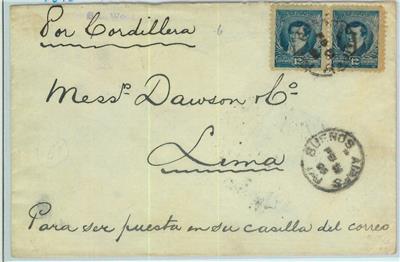 Por Cordillera
12 12
Messrs Dawson & Co
Lima
BUENOS AIRES
Para ser puesta en su casilla del correo